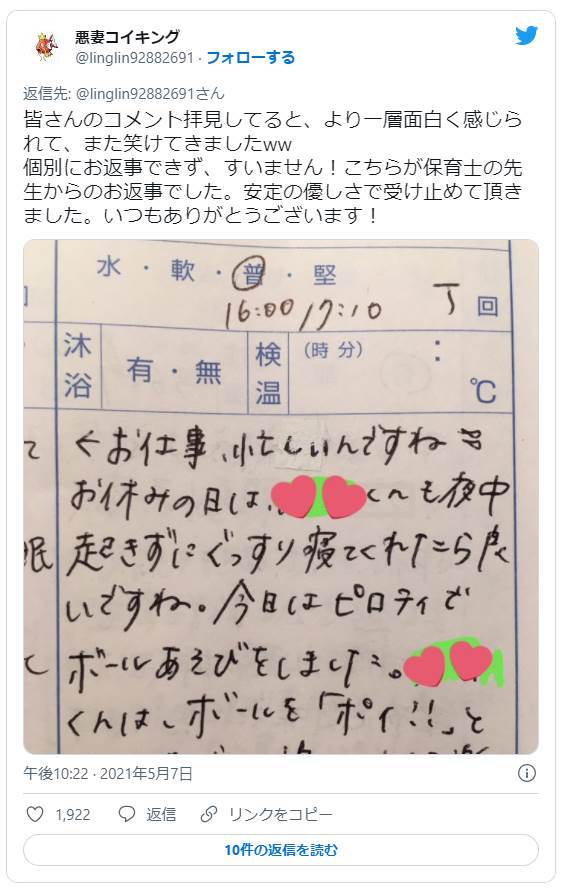 悪妻コイキング
@linglin92882691 · フォローする
返信先: @linglin92882691さん
皆さんのコメント拝見してると、より一層面白く感じら
れて、また笑けてきましたww
個別にお返事できず、すいません！こちらが保育士の先
生からのお返事でした。安定の優しさで受け止めて頂き
ました。いつもありがとうございます！
水・軟・普・堅
16:00 17:10 回
沐浴 有・無 検温 (時分) : ℃
←お仕事、忙しいんですね
お休みの日は、くんも夜中
眠 起きずにぐっすり寝てくれたら良
いですね。今日はピロティで
ボールあそびをしました。
くんは、ボールを「ポイ!!」と
午後10:22 · 2021年5月7日
1,922 返信 リンクをコピー
10件の返信を読む